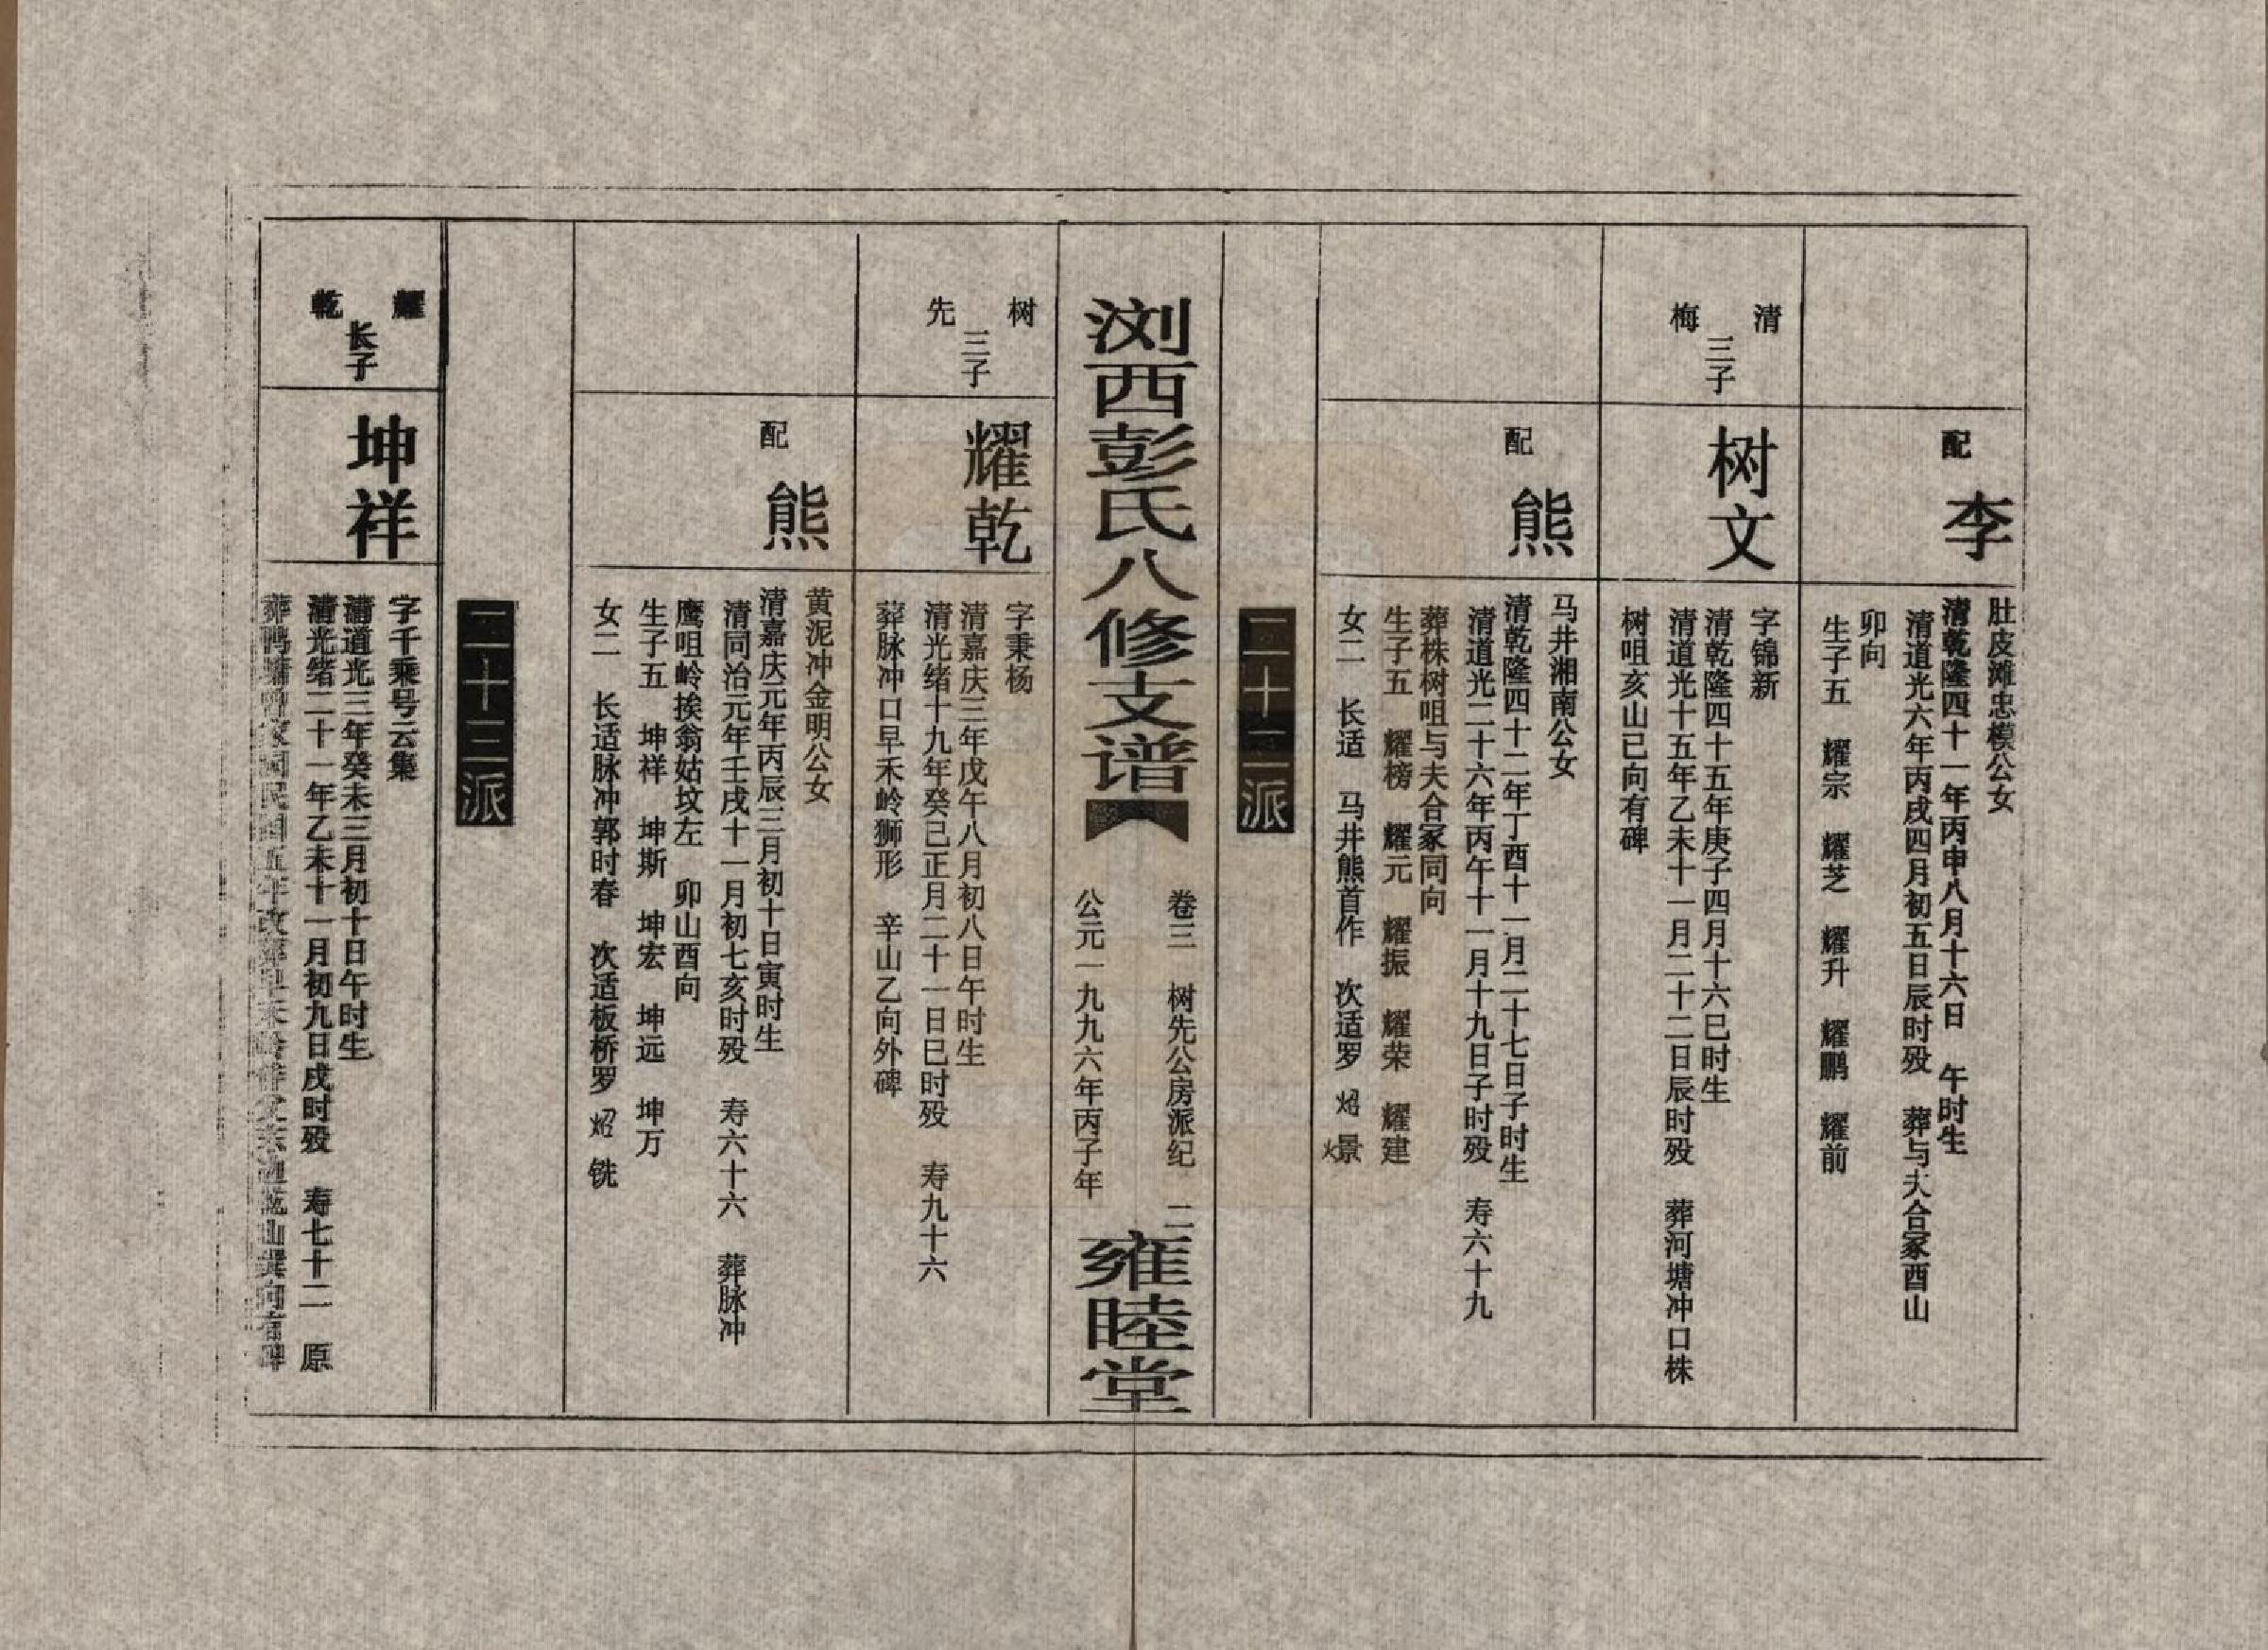 配 李
肚皮滩忠模公女
清乾隆四十一年丙申八月十六日 午时生
清道光六年丙戌四月初五日辰时殁 葬与夫合冢酉山
卯向
生子五 耀宗 耀芝 耀升 耀鹏 耀前
清梅三子
树文
字锦新
清乾隆四十五年庚子四月十六巳时生
清道光十五年乙未十一月二十二日辰时殁 葬河塘冲口株
树咀亥山巳向有碑
配 熊
马井湘南公女
清乾隆四十二年丁酉十一月二十七日子时生
清道光二十六年丙午十一月十九日子时殁 寿六十九
葬株树咀与夫合冢同向
生子五 耀榜 耀元 耀振 耀荣 耀建
女二 长适 马井熊首作 次适罗炤㬌
二十二派
浏西彭氏八修支谱
卷三 树先公房派纪 二
公元一九九六年丙子年
雍睦堂
树先三子
耀乾
字秉杨
清嘉庆三年戊午八月初八日午时生
清光绪十九年癸巳正月二十一日巳时殁 寿九十六
葬脉冲口早禾岭狮形 辛山乙向外碑
配 熊
黄泥冲金明公女
清嘉庆元年丙辰三月初十日寅时生
清同治元年壬戌十一月初七亥时殁 寿六十六 葬脉冲
鹰咀岭挨翁姑坟左 卯山酉向
生子五 坤祥 坤斯 坤宏 坤远 坤万
女二 长适脉冲郭时春 次适板桥罗炤铣
二十三派
耀乾长子
坤祥
字千乘号云集
清道光三年癸未三月初十日午时生
清光绪二十一年乙未十一月初九日戌时殁 寿七十二 原
葬鸭塘 民国五年改葬早禾岭 父 山巽向有碑